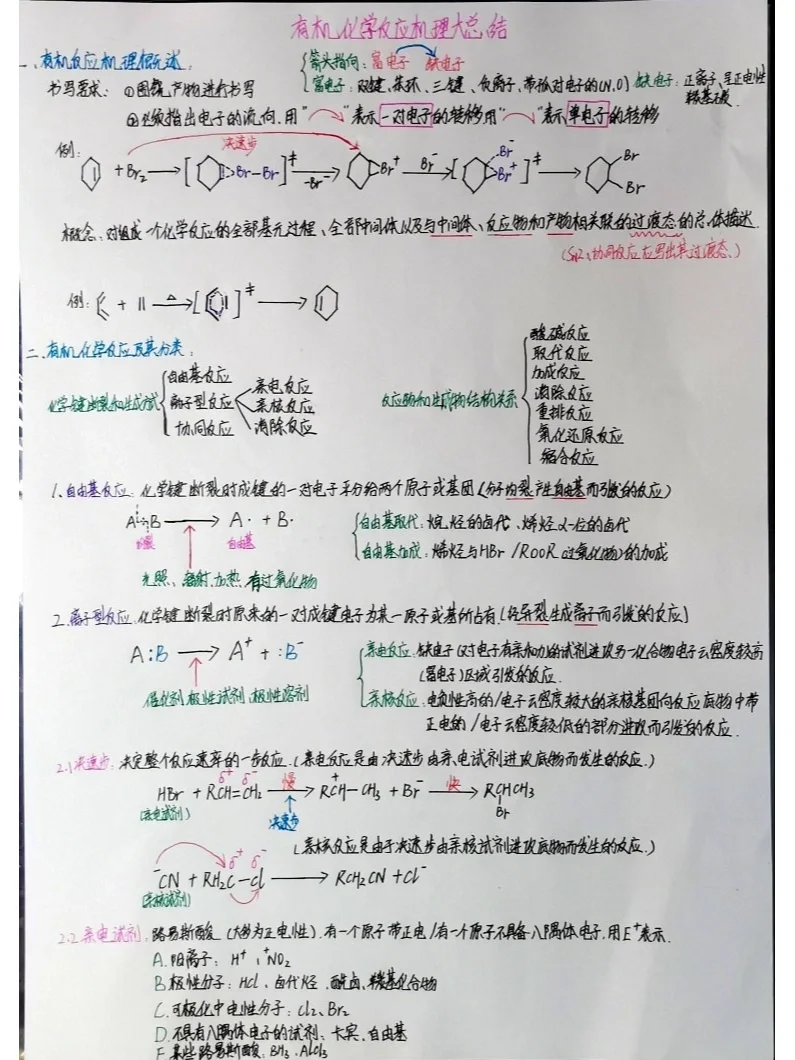 有机化学反应机理大总结
一、有机反应机理概述：
箭头指向：富电子 缺电子
富电子：双键、苯环、三键、负离子、带孤对电子的(N,O) 缺电子：正离子、呈正电性
羰基碳.
书写要求： ①图 产物进行书写
②必须指出电子的流向.用“ ”表示一对电子的转移用“ ”表示单电子的转移
决速步
例： + Br₂ → [ Br-Br ]‡ -Br⁻ → Br⁺ Br⁻ → [ Br⁻ Br⁺ ]‡ → Br Br
概念：对组成一个化学反应的全部基元过程、全部中间体以及与中间体、反应物和产物相关联的过渡态的总体描述.
(SN2、协同反应应写出其过渡态.)
例： + || △ → [ ]‡ →
二、有机化学反应及其分类：
化学键断裂和生成方式
自由基反应
离子型反应
协同反应
亲电反应
亲核反应
消除反应
反应物和生成物结构关系
酸碱反应
取代反应
加成反应
消除反应
重排反应
氧化还原反应
缩合反应
1、自由基反应：化学键断裂时成键的一对电子平分给两个原子或基团(分子均裂产生自由基而引发的反应)
A:B → A· + B·
均裂 自由基
光照、辐射、加热、有过氧化物
自由基取代：烷烃的卤代、烯烃α-位的卤代
自由基加成：烯烃与HBr/ROOR(过氧化物)的加成
2、离子型反应：化学键断裂时原来的一对成键电子为某一原子或基所占有.(经异裂生成离子而引发的反应)
A:B → A⁺ + :B⁻
催化剂.极性试剂.极性溶剂
亲电反应：缺电子(对电子有亲和力)的试剂进攻另一化合物电子云密度较高
(富电子)区域引发的反应.
亲核反应：电负性高的/电子云密度较大的亲核基团向反应底物中带
正电的/电子云密度较低的部分进攻而引发的反应.
2.1决速步：决定整个反应速率的一步反应.(亲电反应是由决速步由亲电试剂进攻底物而发生的反应.)
HBr + RCH=CH₂ δ⁺ δ⁻ 慢 → RCH⁺-CH₃ + Br⁻ 快 → RCHCH₃
(亲电试剂) 决速步 Br
(亲核反应是由于决速步由亲核试剂进攻底物而发生的反应.)
⁻CN + RH₂C-Cl δ⁺ δ⁻ → RCH₂CN + Cl⁻
(亲核试剂)
2.2亲电试剂：路易斯酸 (大多为正电性).有一个原子带正电/有一个原子不具备八隅体电子.用E⁺表示.
A.阳离子：H⁺、⁺NO₂
B.极性分子：HCl、卤代烃、酰卤、羰基化合物
C.可极化中电性分子：Cl₂、Br₂
D.不具有八隅体电子的试剂：卡宾、自由基
E.某些路易斯酸：BH₃、AlCl₃